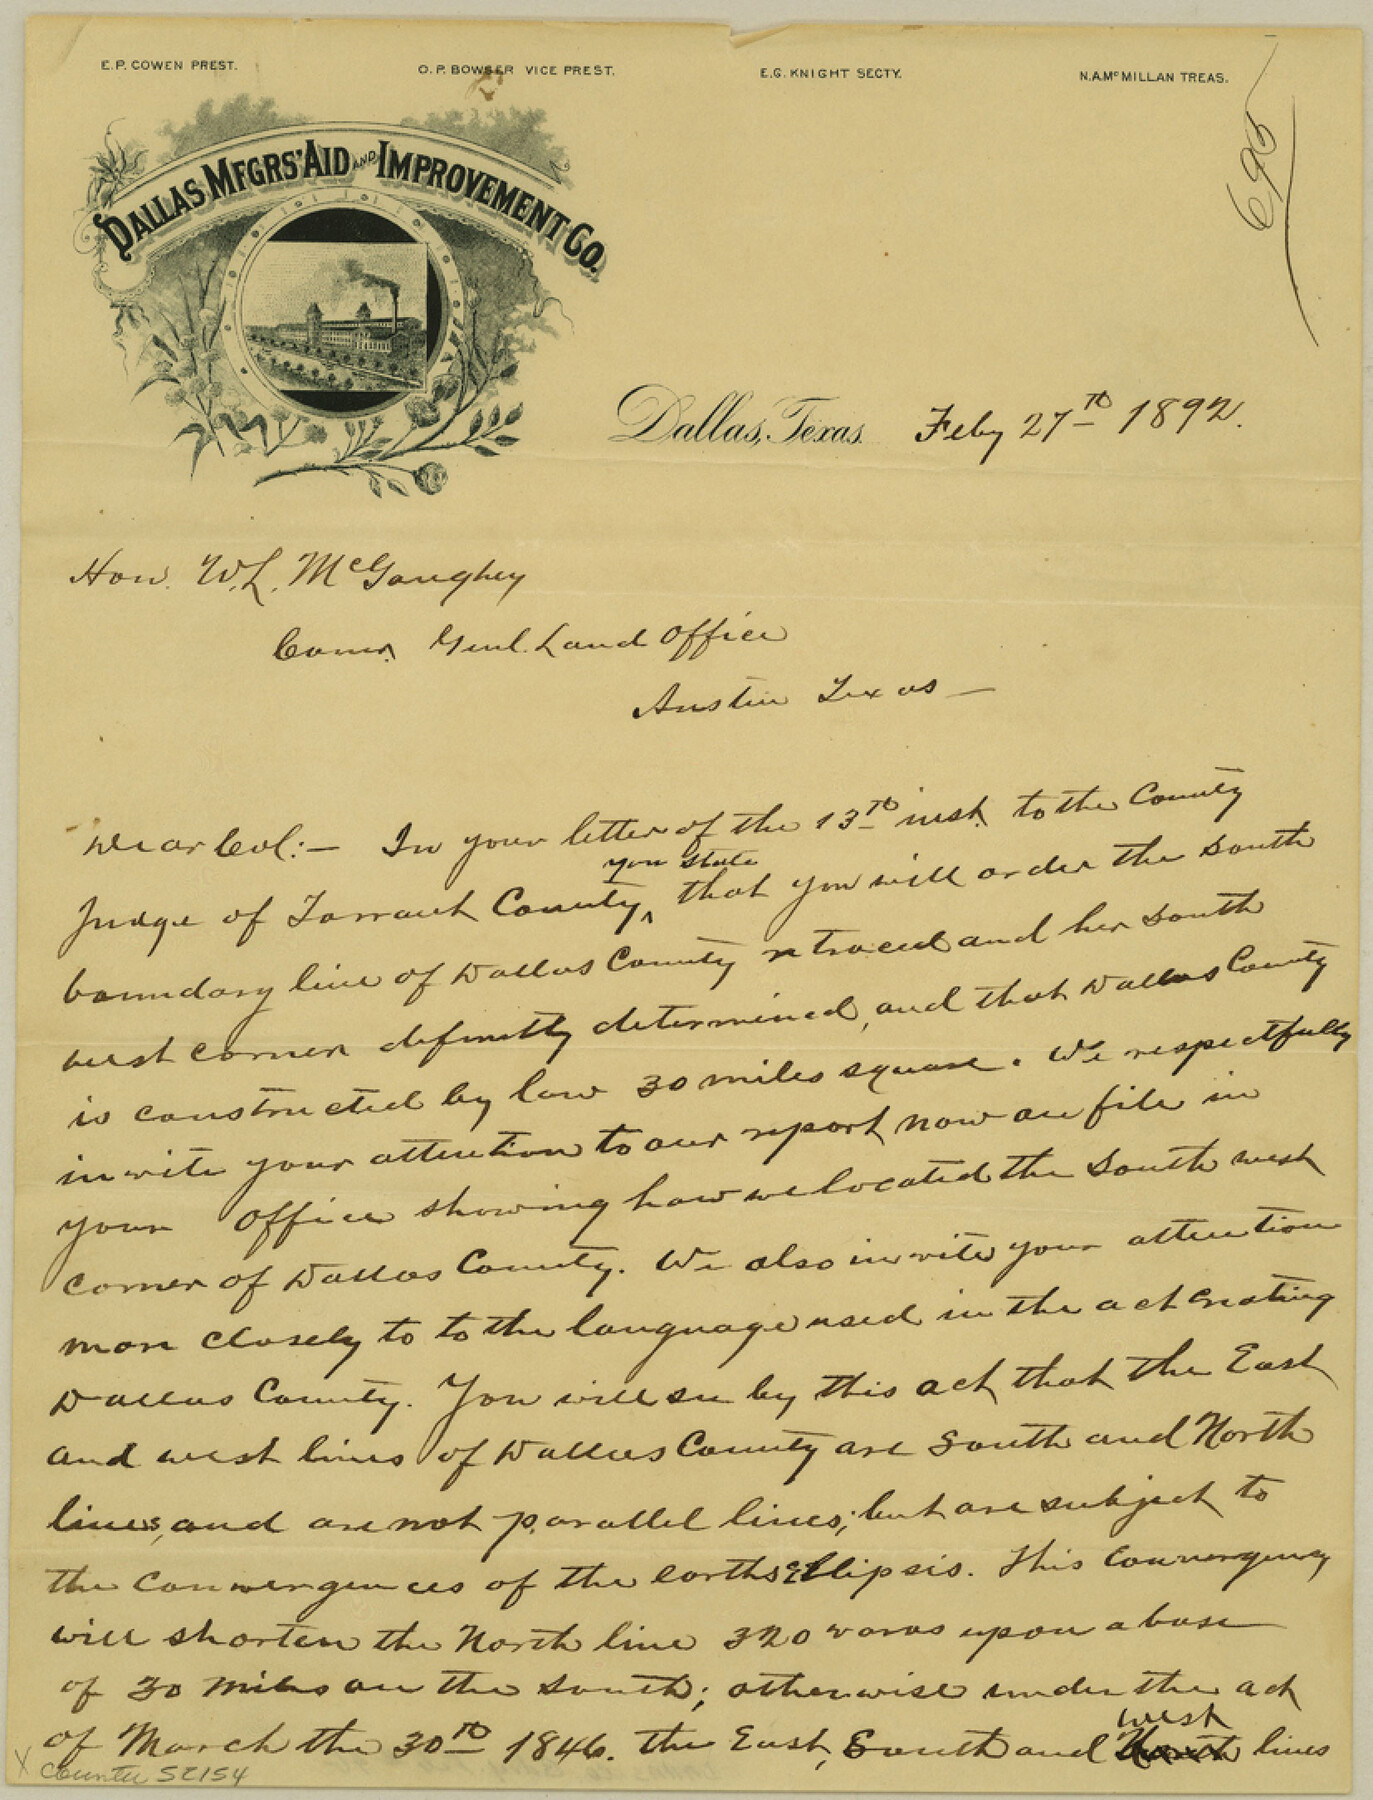 E.P. COWEN PREST.
O.P. BOWSER VICE PREST.
E.G. KNIGHT SECTY.
N.A. McMILLAN TREAS.
695
DALLAS MFGRS' AID AND IMPROVEMENT CO.
Dallas, Texas. Feby 27th 1892.
Hon. W.L. McGaughey
Comr. Genl. Land Office
Austin Texas —
Dear Col:— In your letter of the 13th inst. to the County
you state
Judge of Tarrant County, ^ that you will order the South
boundary line of Dallas County retraced and her South
west corner definitly determined, and that Dallas County
is constructed by law 30 miles square. We respectfully
invite your attention to our report now on file in
your Office showing how we located the South west
corner of Dallas County. We also invite your attention
more closely to to the language used in the act creating
Dallas County. You will see by this act that the East
and west lines of Dallas County are South and North
lines, and are not parallel lines; but are subject to
the convergences of the earths Ellipsis. This convergency
will shorten the North line 320 varas upon a base
of 30 miles on the South; otherwise under the act
west
of March the 30th 1846. the East, South and North lines
x Counter 52154